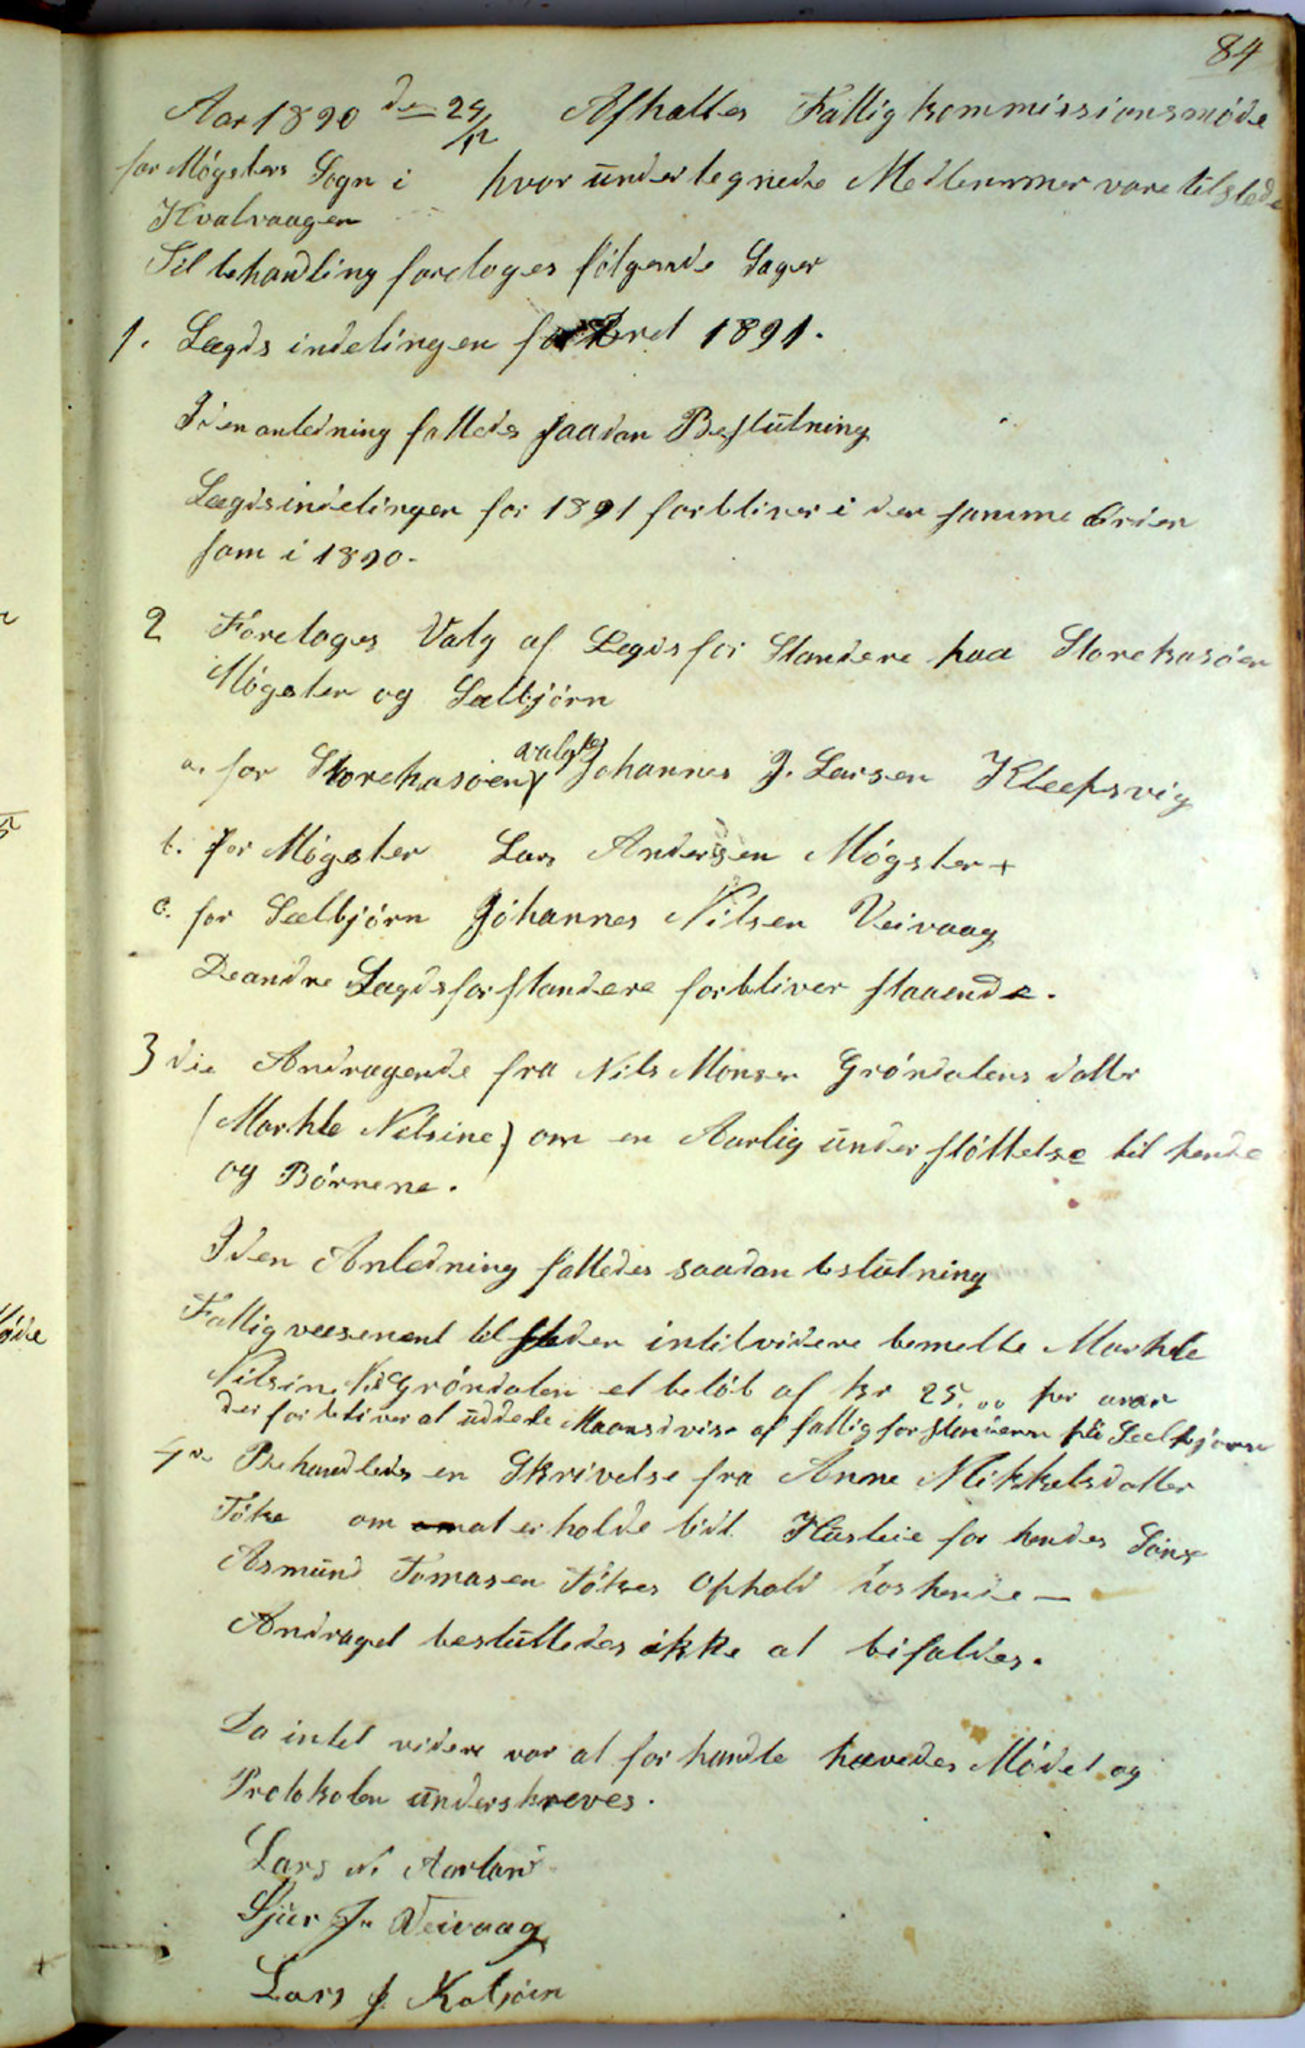 84
Aar 1890 den 29/12 Afholtes Fattigkommissionsmøde
for Møgsters Sogn i hvor undertegnede Medlemmer vare tilstede
Hvalvaagen
Til behandling foretoges følgende Sager
1. Lægds indelingen for 1891.
I den anledning fattedes saadan Beslutning
Lægdsindelingen for 1891 forbliver i den samme Orden
som i 1890.
2 Foretoges Valg af Lægdsforstandere paa Storekasøen
Møgster og Sælbjørn
a. for Storekasøen valgtes Johannes J. Larsen Kleepsvig
b. for Møgster Lars Andersen Møgster +
c. for Sælbjørn Johannes Nilsen Veivaag
De andre Lægdsforstandere forbliver staaende.
3die Andragende fra Nils Monsen Grøndalens datter
(Markte Nilsine) om en Aarlig understøttelse til hende
og Børnene.
I den Anledning fattedes saadan beslutning
Fattigvæsenent tilsteder intilvidere bemelte Markte
Nilsine Grøndalen et beløb af kr 25,00 per aar
der forbliver at uddele Maanedvise af fattigforstanderen på Sælbjørn
4de Behandledes en Skrivelse fra Anne Mikkelsdatter
Føke om at erholde lidt Husleie for hendes Søns
Asmund Tomasen Føkes Ophold hos hende —
Andraget besluttedes ikke at bifaldes.
Da intet videre var at forhandle hævedes Mødet og
Protokolen underskreves.
Lars N. Aarland
Sjur J. Veivaag
Lars J Kalsøin
øde